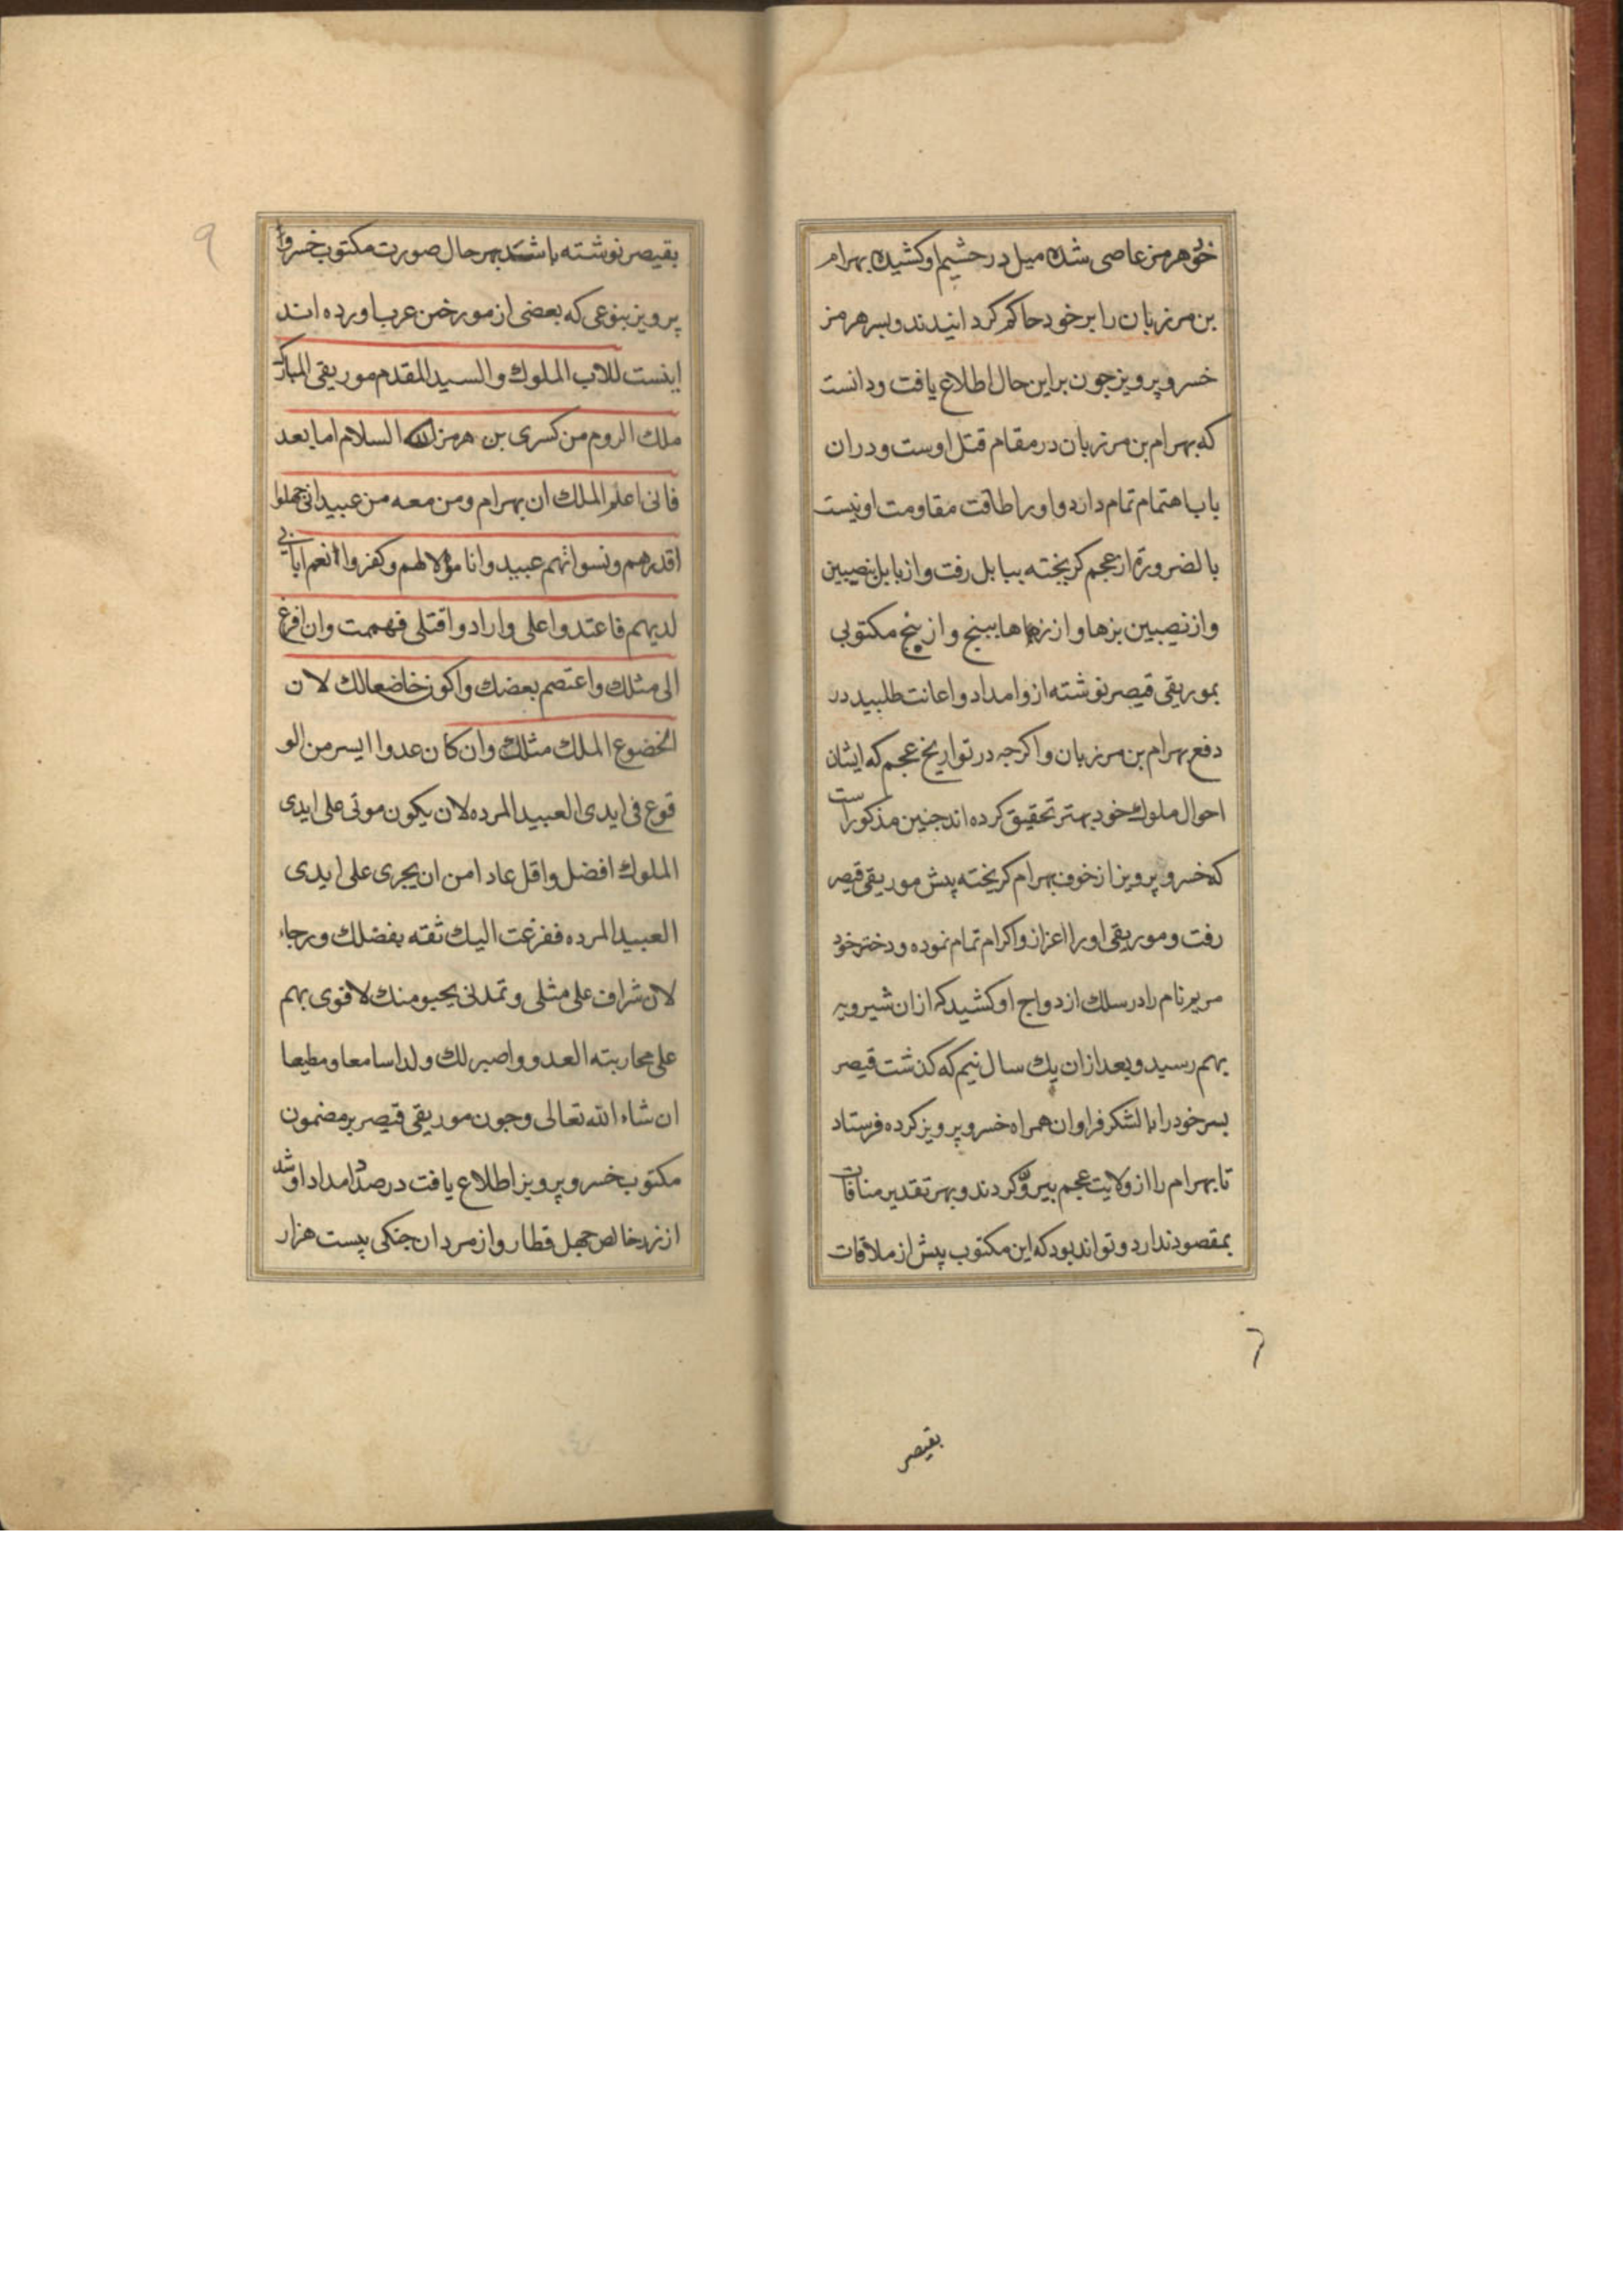 خود هرمز عاصی شده میل در حشیم او کشیده بهرام
بن مرزبان را بر خود حاکم کردانیدند و بسر هرمز
خسرو پرویز جون بر این حال اطلاع یافت و دانست
که بهرام بن مرزبان در مقام قتل اوست و در ان
باب اهتمام تمام دارد و او را طاقت مقاومت او نیست
بالضرورة از عجم کریخته ببابل رفت و از بابل بنصیبین
و از نصیبین بزها و از زها بمبنج و از پنج مکتوبی
بموریقی قیصر نوشته ازو امداد و اعانت طلبید در
دفع بهرام بن مرزبان و اکرجه در تواریخ عجم که ایشان
احوال ملوك خود بهتر تحقیق کرده اند جنین مذکور است
که خسرو پرویز از خوف بهرام کریخته پیش موریقی قیصر
رفت و موریقی او را اعزاز و اکرام تمام نموده و دختر خود
مریم نام را در سلك ازدواج او کشید که از ان شیرویه
بهم رسید و بعد از ان یك سال نیم که کذشت قیصر
بسر خود را با لشکر فراوان همراه خسرو پرویز کرده فرستاد
تا بهرام را از ولایت عجم بیرون کردند و بهر تقدیر منافات
بمقصود ندارد و تواند بود که این مکتوب پیش از ملاقات
بقیصر
بقیصر نوشته باشد بهر حال صورت مکتوب خسرو
پرویز بنوعی که بعضی از مورخین عرب اورده اند
اینست للاب الملوك والسید المقدم موریقی المبارك
ملك الروم من کسری بن هرمز السلام اما بعد
فانی اعلم الملك ان بهرام ومن معه من عبید ابی جهلوا
اقدرهم ونسوا انهم عبید وانا مولا لهم وکفروا انعم ابائی
لدیهم فاعتدوا علی وارادوا قتلی فهممت وان افزع
الی مثلك واعتصم بعضك واکون خاضعا لك لان
الخضوع الملك مثلك وان کان عدوا ایسر من الو
قوع فی ایدی العبید المرده لان یکون موتی علی ایدی
الملوك افضل واقل عادا من ان یجری علی ایدی
العبید المرده ففزعت الیك ثقه بفضلك ورجاء
لان شراف علی مثلی وتمدنی بحیو منك لاقوی بهم
علی محاربته العدو واصیر لك ولدا سامعا ومطیعا
ان شاء الله تعالی وجون موریقی قیصر بر مضمون
مکتوب خسرو پرویز اطلاع یافت در صدد امداد او شد
از زد خالص جهل قطار و از مردان جنکی بیست هزار
۹
۶